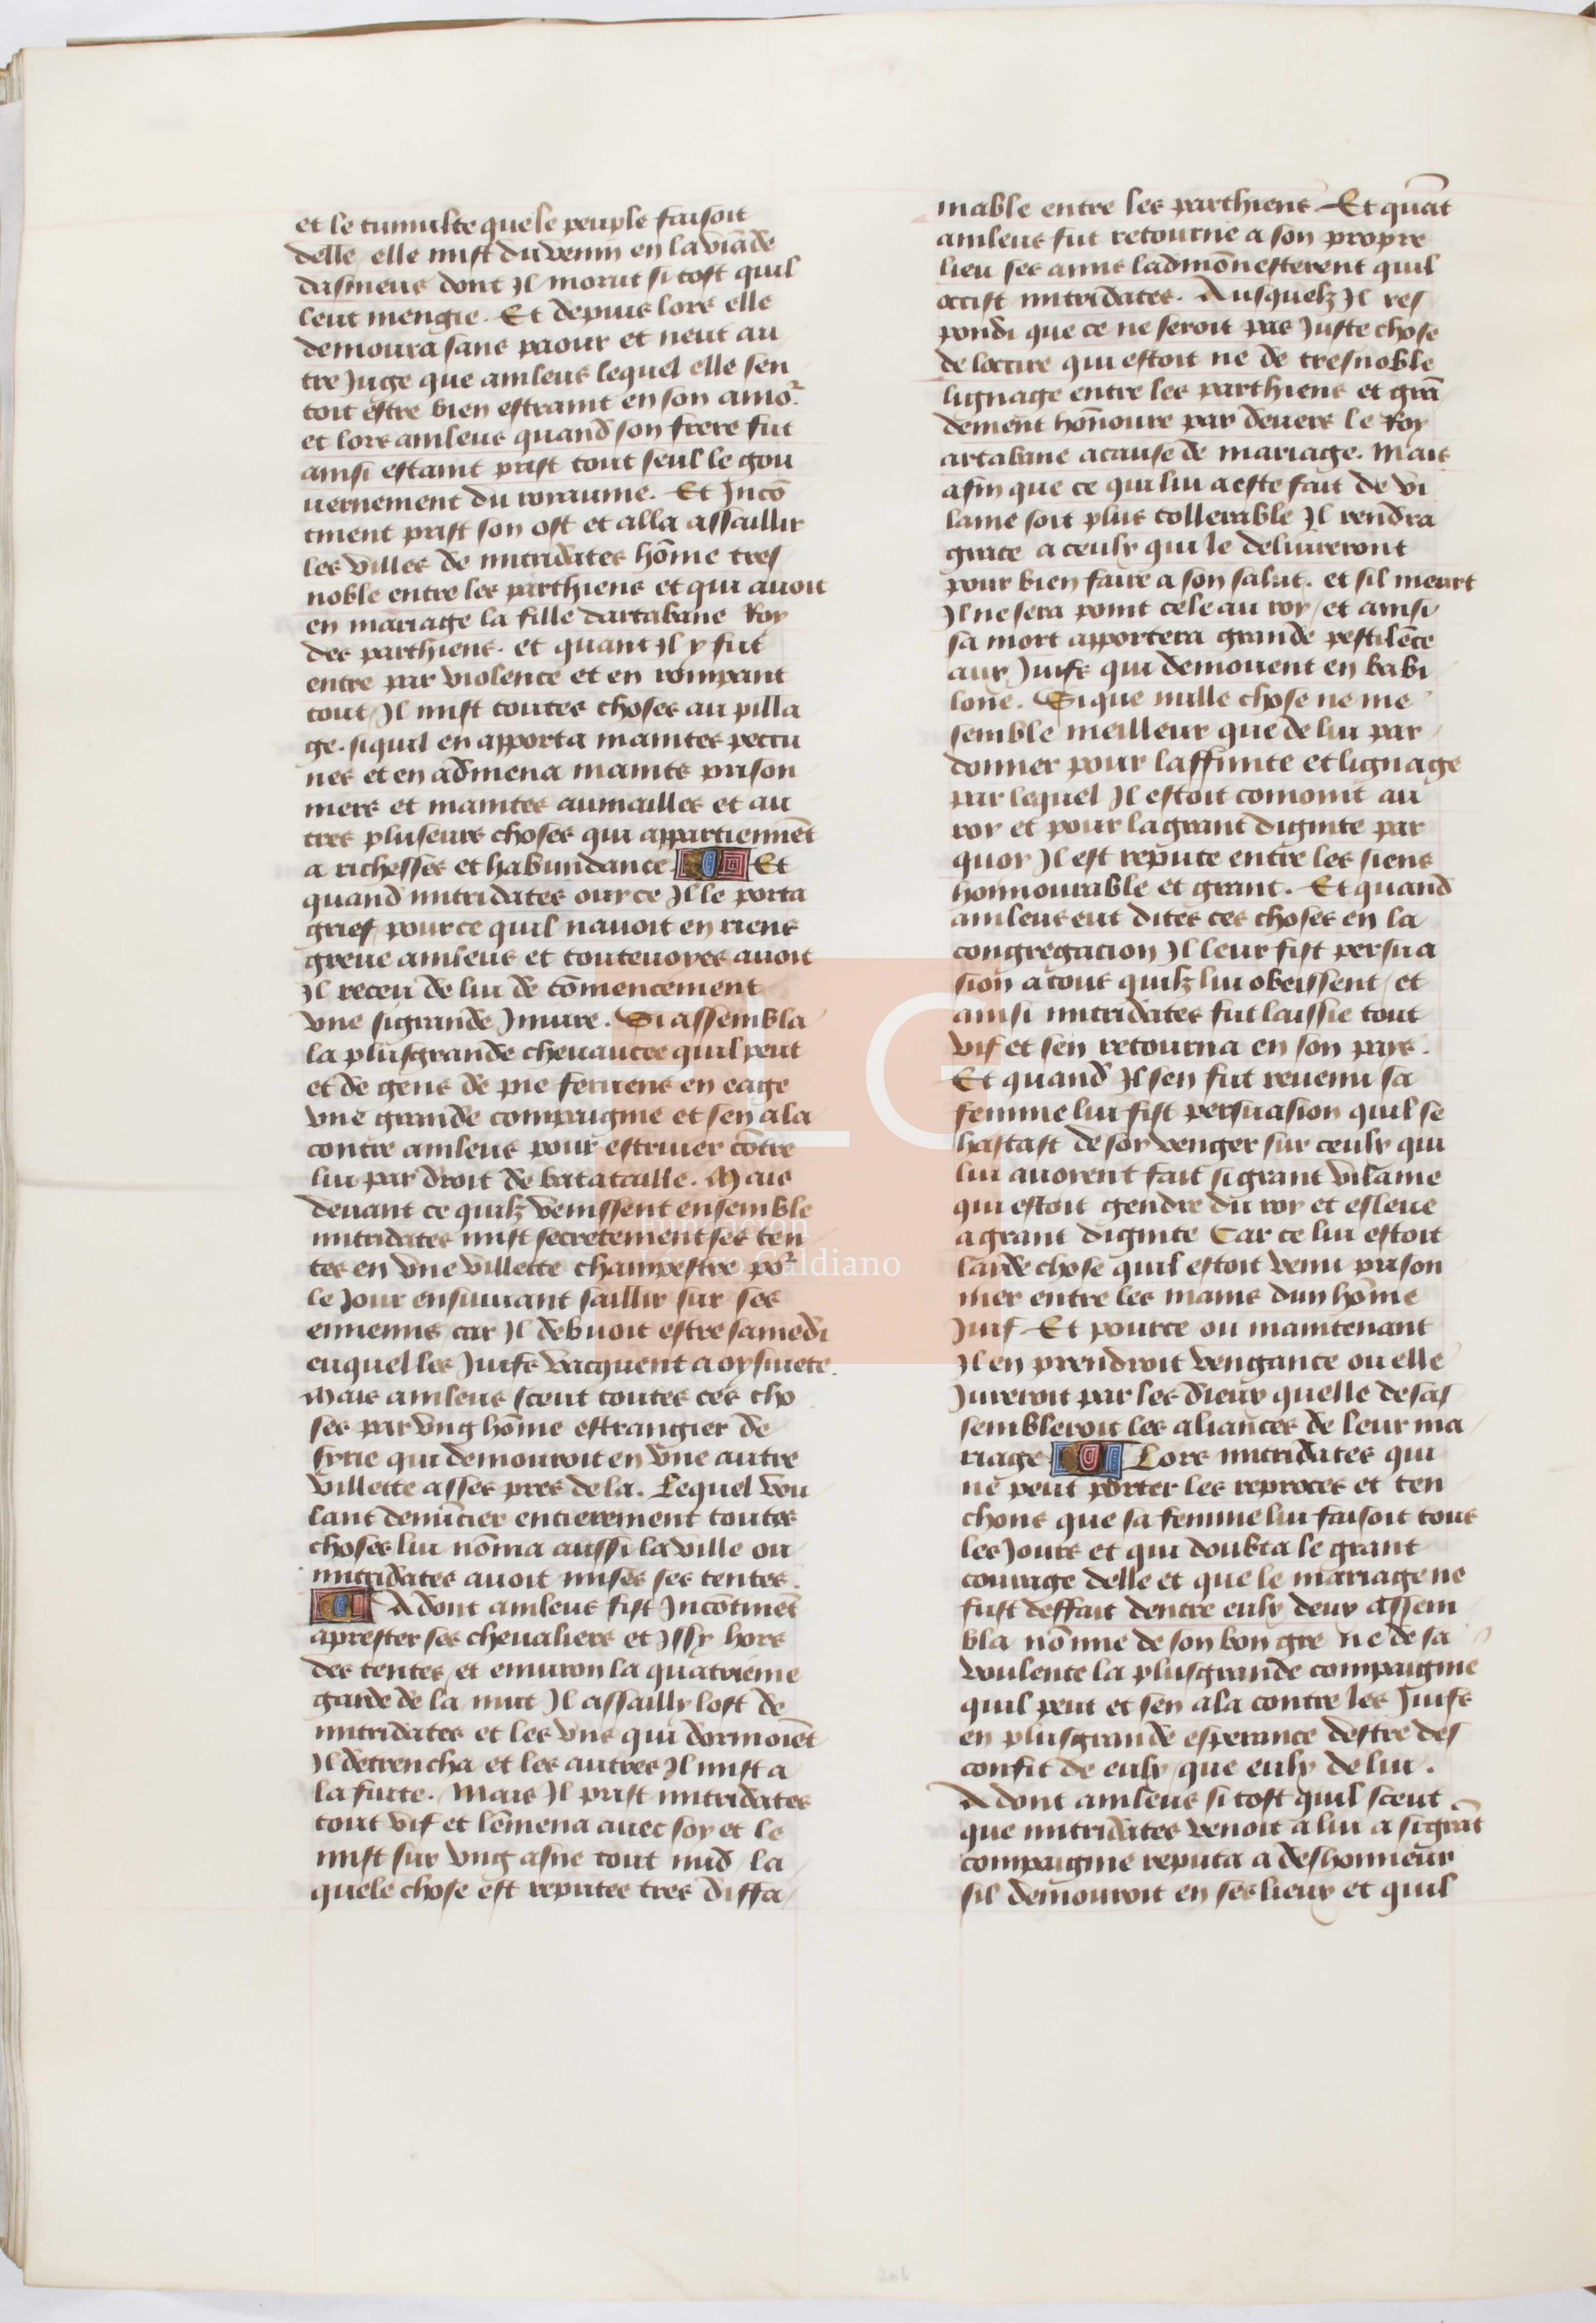 et le tumulte que le peuple faisoit
delle / elle mist du venin en la viāde
dasineus dont Jl morut si tost quil
leut mengie. Et depuis lors elle
demoura sans paour et neut au
tre Juge que anileus lequel elle sen
toit estre bien estraint en son amor.
et lors anileus quand son frere fut
ainsi estaint prist tout seul le gou
uernement du royaume. Et Jncō
tinent prist son ost et alla assaillir
les villes de mitridates hōme tres
noble entre les parthiens et qui auoit
en mariage la fille dartabane Roy
des parthiens. et quant Jl y fut
entre par violence et en rompant
tout / Jl mist toutes choses au pilla
ge. siquil en apporta maintes peccu
nes et en admena maints prison
niers et maintes aumailles et au
tres pluseurs choses qui appartiennēt
a richesses et habundance Et
quand mitridates ouy ce Jl le porta
grief / pour ce quil nauoit en riens
greue anileus et touteuoyes auoit
Jl receu de lui de cōmencement
vne sigrande Jniure. Si assembla
la plusgrande cheuaucee quil peut
et de gens de pie feruens en eage
vne grande compaignie et sen ala
contre anileus pour estriuer cōtre
lui par droit de batataille. Mais
deuant ce quilz venissent ensemble
mitridates mist secretement ses ten
tes en vne villette champestre por
le Jour ensuiuant saillir sur ses
ennemis / car Jl debuoit estre samedi
euquel les Juifs vacquent a oysiuete.
Mais anileus sceut toutes ces cho
ses par vng hōme estrangier de
syrie qui demouroit en vne autre
villette asses pres de la. Lequel vou
lant denūcier entierement toutes
choses lui nōma aussi la ville ou
mitridates auoit mises ses tentes.
Adont anileus fist Jncōtinēt
aprester ses cheualiers et Jssy hors
des tentes / et enuiron la quatrieme
garde de la nuit Jl assailly lost de
mitridates et les vns qui dormoiēt
Jl detrencha et les autres Jl mist a
la fuite. Mais Jl prist mitridates
tout vif et lēmena auec soy et le
mist sur vng asne tout nud / la
quele chose est reputee tres diffa
mable entre les parthiens Et quāt
anileus fut retourne a son propre
lieu ses amis ladmōnesterent quil
occist mitridates. Ausquelz Jl res
pondi que ce ne seroit pas Juste chose
de loccire qui estoit ne de tresnoble
lignage entre les parthiens et grā
dement hōnoure par deuers le Roy
artabane a cause de mariage. Mais
afin que ce qui lui a este fait de vi
lanie soit plus tollerable Jl rendra
grace a ceulx qui le deliureront
pour bien faire a son salut. et sil meurt
Jl ne sera point cele au roy / et ainsi
sa mort apportera grande pestilēce
aux Juifs qui demouent en babi
lone. Si que nulle chose ne me
semble meilleur que de lui par
donner pour laffinite et lignage
par lequel Jl estoit conioint au
roy et pour la grant dignite par
quoy Jl est repute entre les siens
honnourable et grant. Et quand
anileus eut dites ces choses en la
congregacion Jl leur fist persua
sion a tous quilz lui obeissent / et
ainsi mitridates fut laissie tout
vif et sen retourna en son pays.
Et quand Jl sen fut reuenu sa
femme lui fist persuasion quil se
hastast de soy venger sur ceulx qui
lui auoient fait si grant vilanie
qui estoit gendre du roy et esleue
a grant dignite Car ce lui estoit
laide chose quil estoit venu prison
nier entre les mains dun hōme
Juif. Et pource ou maintenant
Jl en prendroit vengance ou elle
Jureroit par les dieux quelle desas
sembleroit les aliances de leur ma
riage Lors mitridates qui
ne peut porter les reproces et ten
chons que sa femme lui faisoit tous
les Jours et qui doubta le grant
courage delle et que le mariage ne
fust deffait dentre eulx deux assem
bla nōnne de son bon gre ne de sa
voulente la plusgrande compaignie
quil peut et sen ala contre les Juifs
en plusgrande esperance destre des
confit de eulx / que eulx de lui.
Adont anileus si tost quil sceut
que mitridates venoit a lui a si grāt
compaignie reputa a deshonneur
sil demouroit en ses lieux et quil
FLG
Fundación
Lázaro Galdiano
206